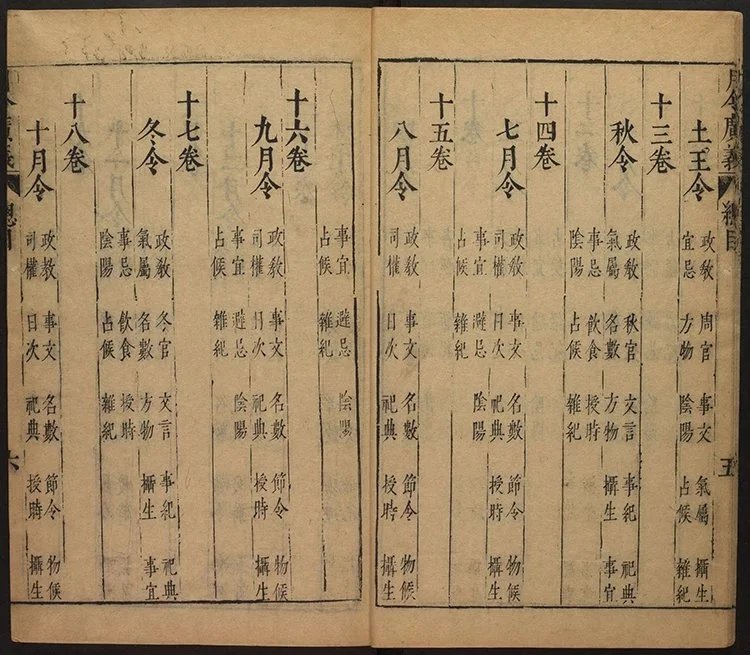 月令廣義 總目 五
土王令
政敎 周官 事文 氣屬 攝生
宜忌 方物 陰陽 占候 雜紀
十三卷
秋令
政敎 秋官 文言 事紀 祀典
氣屬 名數 方物 攝生 事宜
事忌 飲食 授時
陰陽 占候 雜紀
十四卷
七月令
政敎 事文 名數 節令 物候
司權 日次 祀典 授時 攝生
事宜 避忌 陰陽
占候 雜紀
十五卷
八月令
政敎 事文 名數 節令 物候
司權 日次 祀典 授時 攝生
事宜 避忌 陰陽
占候 雜紀
十六卷
九月令
政敎 事文 名數 節令 物候
司權 日次 祀典 授時 攝生
事宜 避忌 陰陽
占候 雜紀
十七卷
冬令
政敎 冬官 文言 事紀 祀典
氣屬 名數 方物 攝生 事宜
事忌 飲食 授時
陰陽 占候 雜紀
十八卷
十月令
政敎 事文 名數 節令 物候
司權 日次 祀典 授時 攝生
月令廣義 總目 六